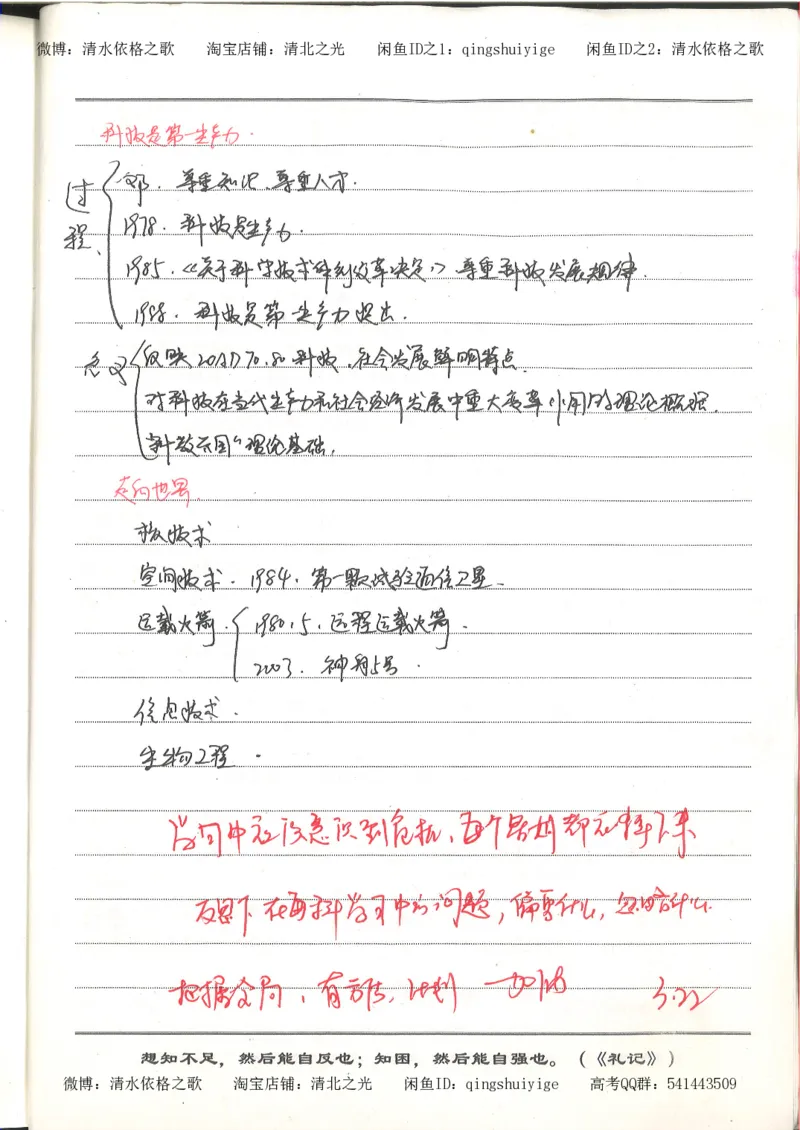 微博：清水依格之歌 淘宝店铺：清北之光 闲鱼ID之1：qingshuiyige 闲鱼ID之2：清水依格之歌
科技是第一生产力.
过程
邓. 尊重知识、尊重人才.
1978. 科技是生产力.
1985.《关于科学技术体制改革决定》尊重科技发展规律.
1988. 科技是第一生产力提出.
意义
反映20AD70.80科技、社会发展鲜明特点.
对科技在当代生产力和社会经济发展中重大变革作用的理论概括.
"科教兴国"理论基础.
走向世界
核技术
空间技术. 1984. 第一颗试验通信卫星.
运载火箭. 1980.5. 远程运载火箭.
2003. 神舟5号.
信息技术.
生物工程.
学可中应该意识到危机，每个同胞都应静下来
反思下在每科学习中的问题，偏重什么，忽略什么.
把握全局，有方法，计划 加油 3.22
想知不足，然后能自反也；知困，然后能自强也。（《礼记》）
微博：清水依格之歌 淘宝店铺：清北之光 闲鱼ID：qingshuiyige 高考QQ群：541443509